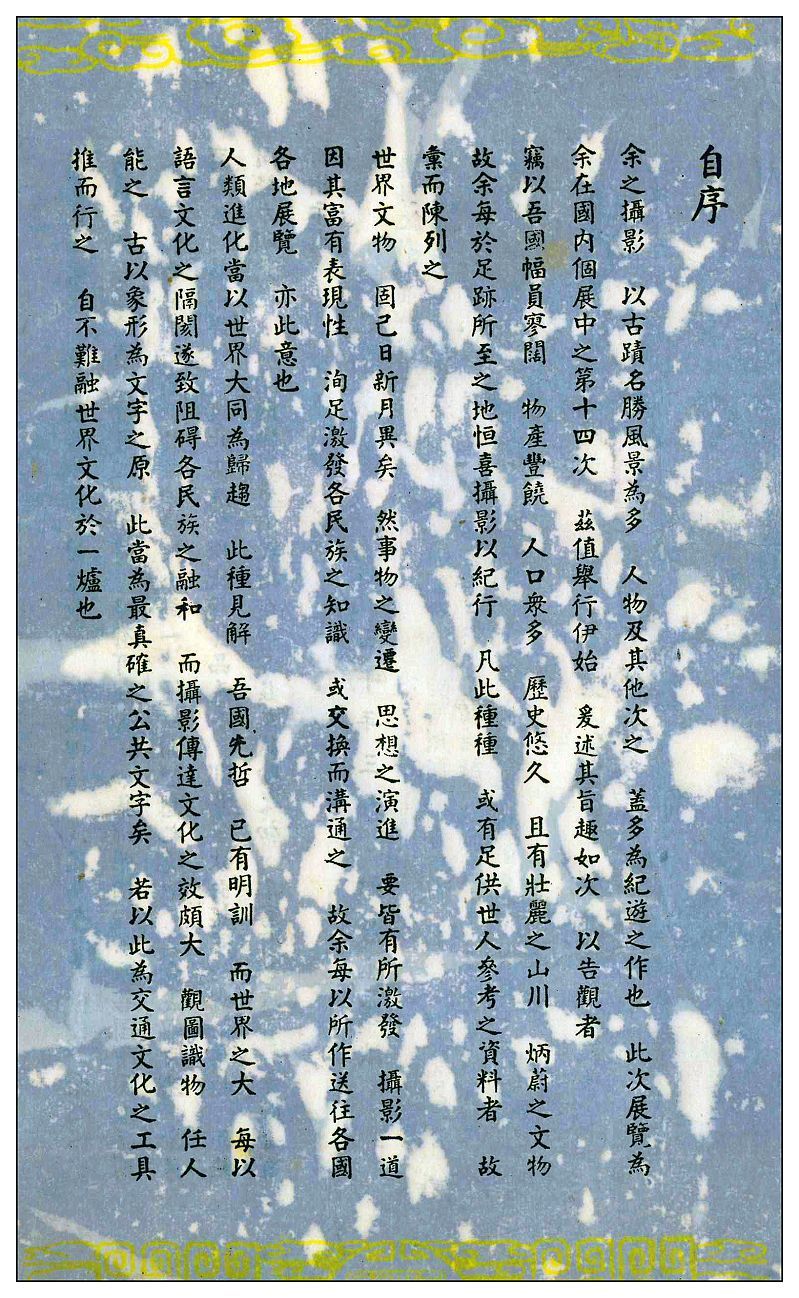 自序
余之攝影　以古蹟名勝風景為多　人物及其他次之　蓋多為紀遊之作也　此次展覽為
余在國內個展中之第十四次　茲值舉行伊始　爰述其旨趣如次　以告觀者
竊以吾國幅員寥闊　物產豐饒　人口衆多　歷史悠久　且有壯麗之山川　炳蔚之文物
故余每於足跡所至之地恒喜攝影以紀行　凡此種種　或有足供世人參考之資料者　故
彙而陳列之
世界文物　固已日新月異矣　然事物之變遷　思想之演進　要皆有所激發　攝影一道
因其富有表現性　洵足激發各民族之知識　或交換而溝通之　故余每以所作送往各國
各地展覽　亦此意也
人類進化當以世界大同為歸趨　此種見解　吾國先哲　已有明訓　而世界之大　每以
語言文化之隔閡遂致阻碍各民族之融和　而攝影傳達文化之效頗大　觀圖識物　任人
能之　古以象形為文字之原　此當為最真確之公共文字矣　若以此為交通文化之工具
推而行之　自不難融世界文化於一爐也